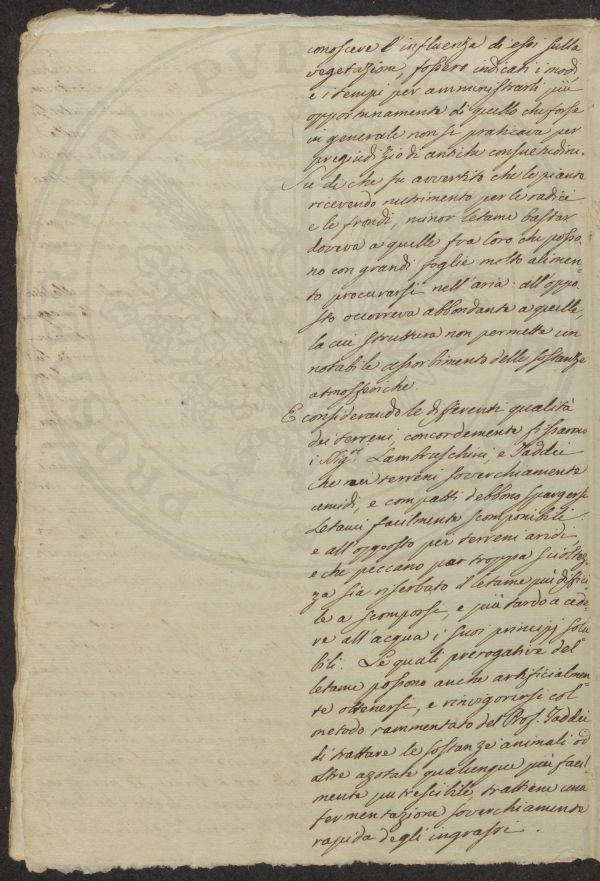 conoscere l'influenza di essi sulla
vegetazione, fossero indicati i modi
e i tempi per amministrarli più
opportunamente di quello che forse
in generale non si praticava per
pregiudizio di antiche consuetudini.
Su di che fu avvertito che le piante
ricevendo nutrimento per le radici
e le frondi, minor letame bastar
doveva a quelle fra loro che posso=
no con grandi foglie molto alimen=
to procurarsi nell'aria: all'oppo=
sto occorreva abbondante a quelle,
la cui struttura non permette un
notabile assorbimento delle sostanze
atmosferiche.
E considerando le differenti qualità
dei terreni, concordemente fissarono
i Sigri Lambruschini, e Taddei
che nei terreni soverchiamente
umidi, e compatti debbono spargersi
letami facilmente scomponibili
e all'opposto per terreni aridi,
e che peccano per troppa scioltez=
za sia riserbato il letame più diffici
le a scomporsi, e più tardo a cede=
re all'acqua i suoi principj solu
bili. Le quali prerogative del
letame possono anche artificialmen=
te ottenersi, e rinvigorirsi col
metodo rammentato del Prof. Taddei
di trattare le sostanze animali od
altre azotate qualunque più facil=
mente putrescibili trattiene una
fermentazione soverchiamente
rapida degli ingrassi.
PVB